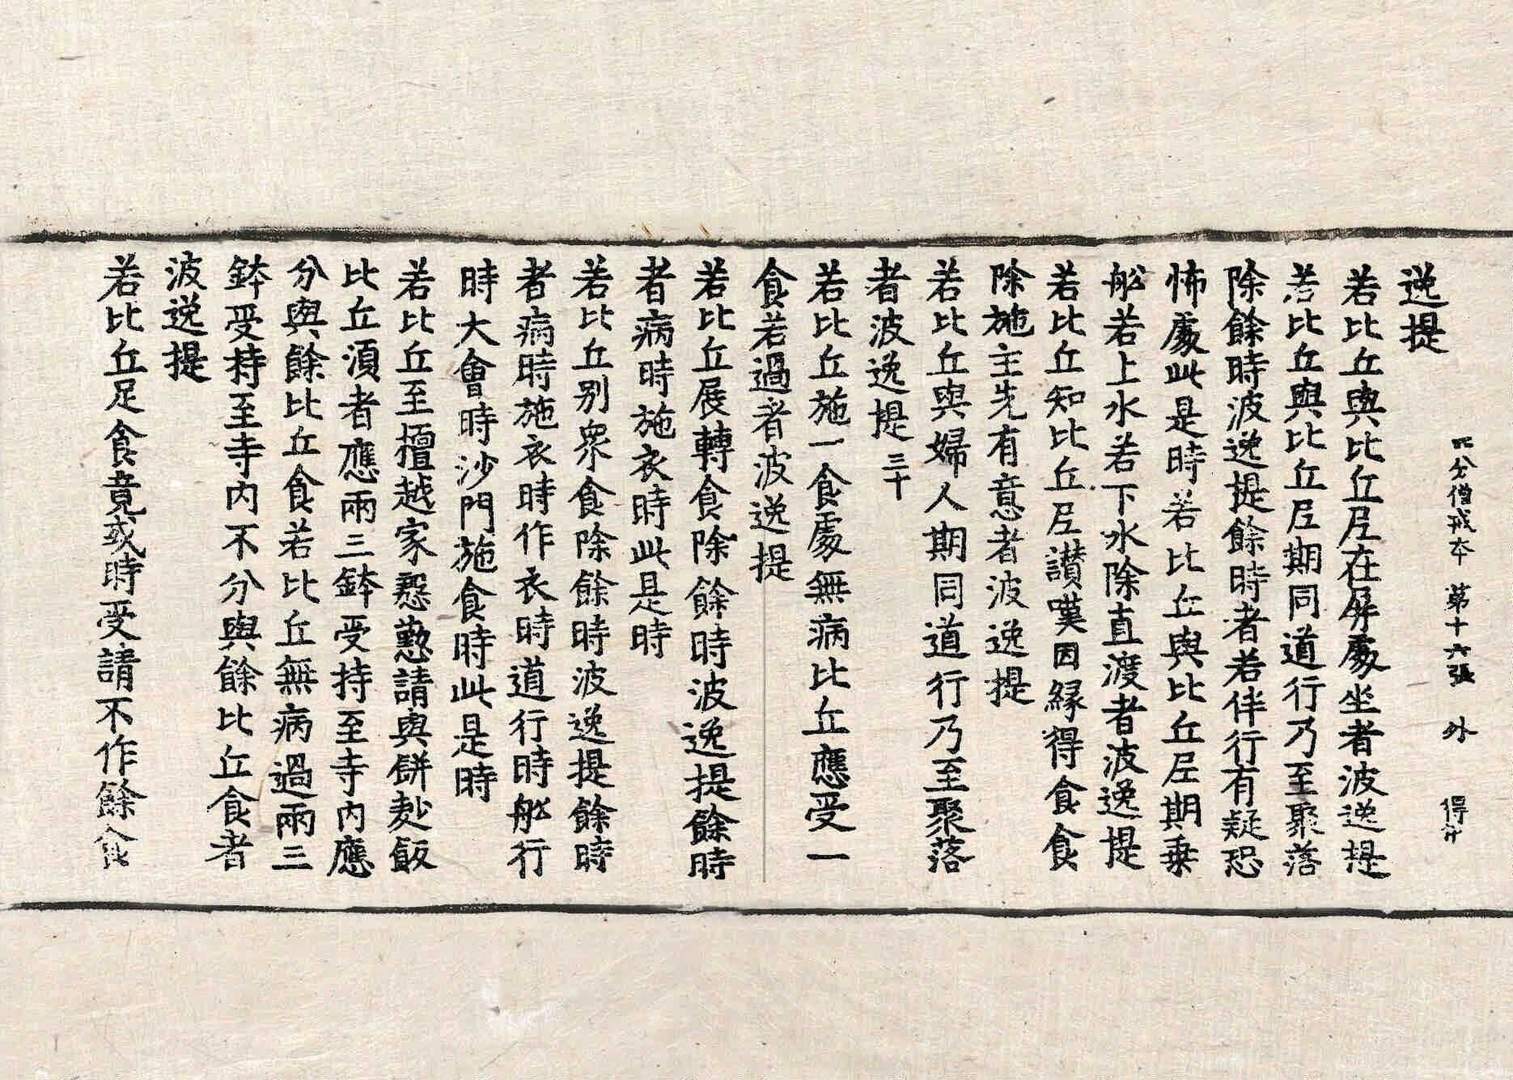 比分僧戒本　第十六張　外　得
逸提
若比丘與比丘尼在屏處坐者波逸提
若比丘與比丘尼期同道行乃至聚落
除餘時波逸提餘時者若伴行有疑恐
怖處此是時若比丘與比丘尼期乗
舩若上水若下水除直渡者波逸提
若比丘知比丘尼讃嘆因縁得食食
除施主先有意者波逸提
若比丘與婦人期同道行乃至聚落
者波逸提三十
若比丘施一食處無病比丘應受一
食若過者波逸提
若比丘展轉食除餘時波逸提餘時
者病時施衣時此是時
若比丘別衆食除餘時波逸提餘時
者病時施衣時作衣時道行時舩行
時大會時沙門施食時此是時
若比丘至檀越家慇懃請與餅麨飯
比丘湏者應兩三鉢受持至寺内應
分與餘比丘食若比丘無病過兩三
鉢受持至寺内不分與餘比丘食者
波逸提
若比丘足食竟或時受請不作餘食